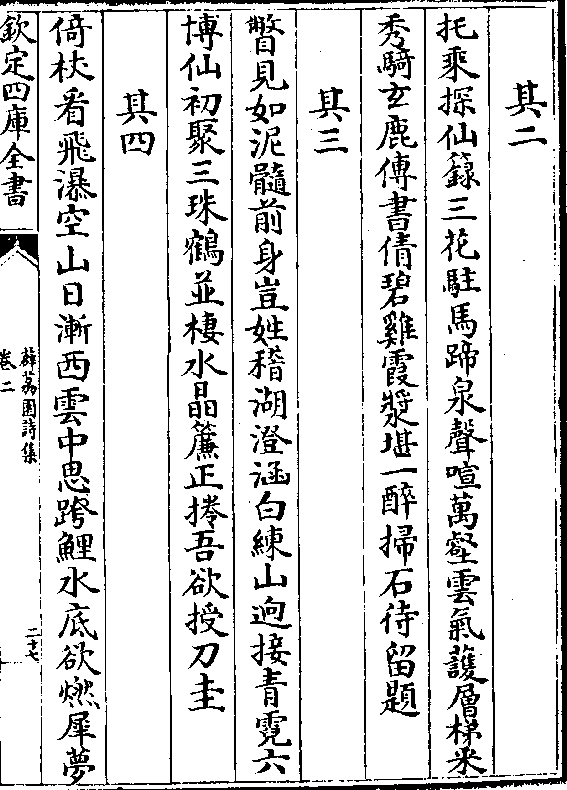 其二
托乘探仙籙三花駐馬蹄泉聲喧萬壑雲氣䕶層梯采
秀騎玄鹿傳書倩碧雞霞漿堪一醉掃石待留題
其三
瞥見如泥髓前身豈姓稽湖澄涵白練山逈接青霓六
博仙初聚三珠鶴並棲水晶簾正捲吾欲授刀圭
其四
倚杖看飛瀑空山日漸西雲中思跨鯉水底欲燃犀夢
欽定四庫全書
薜荔園詩集
卷二
二十七